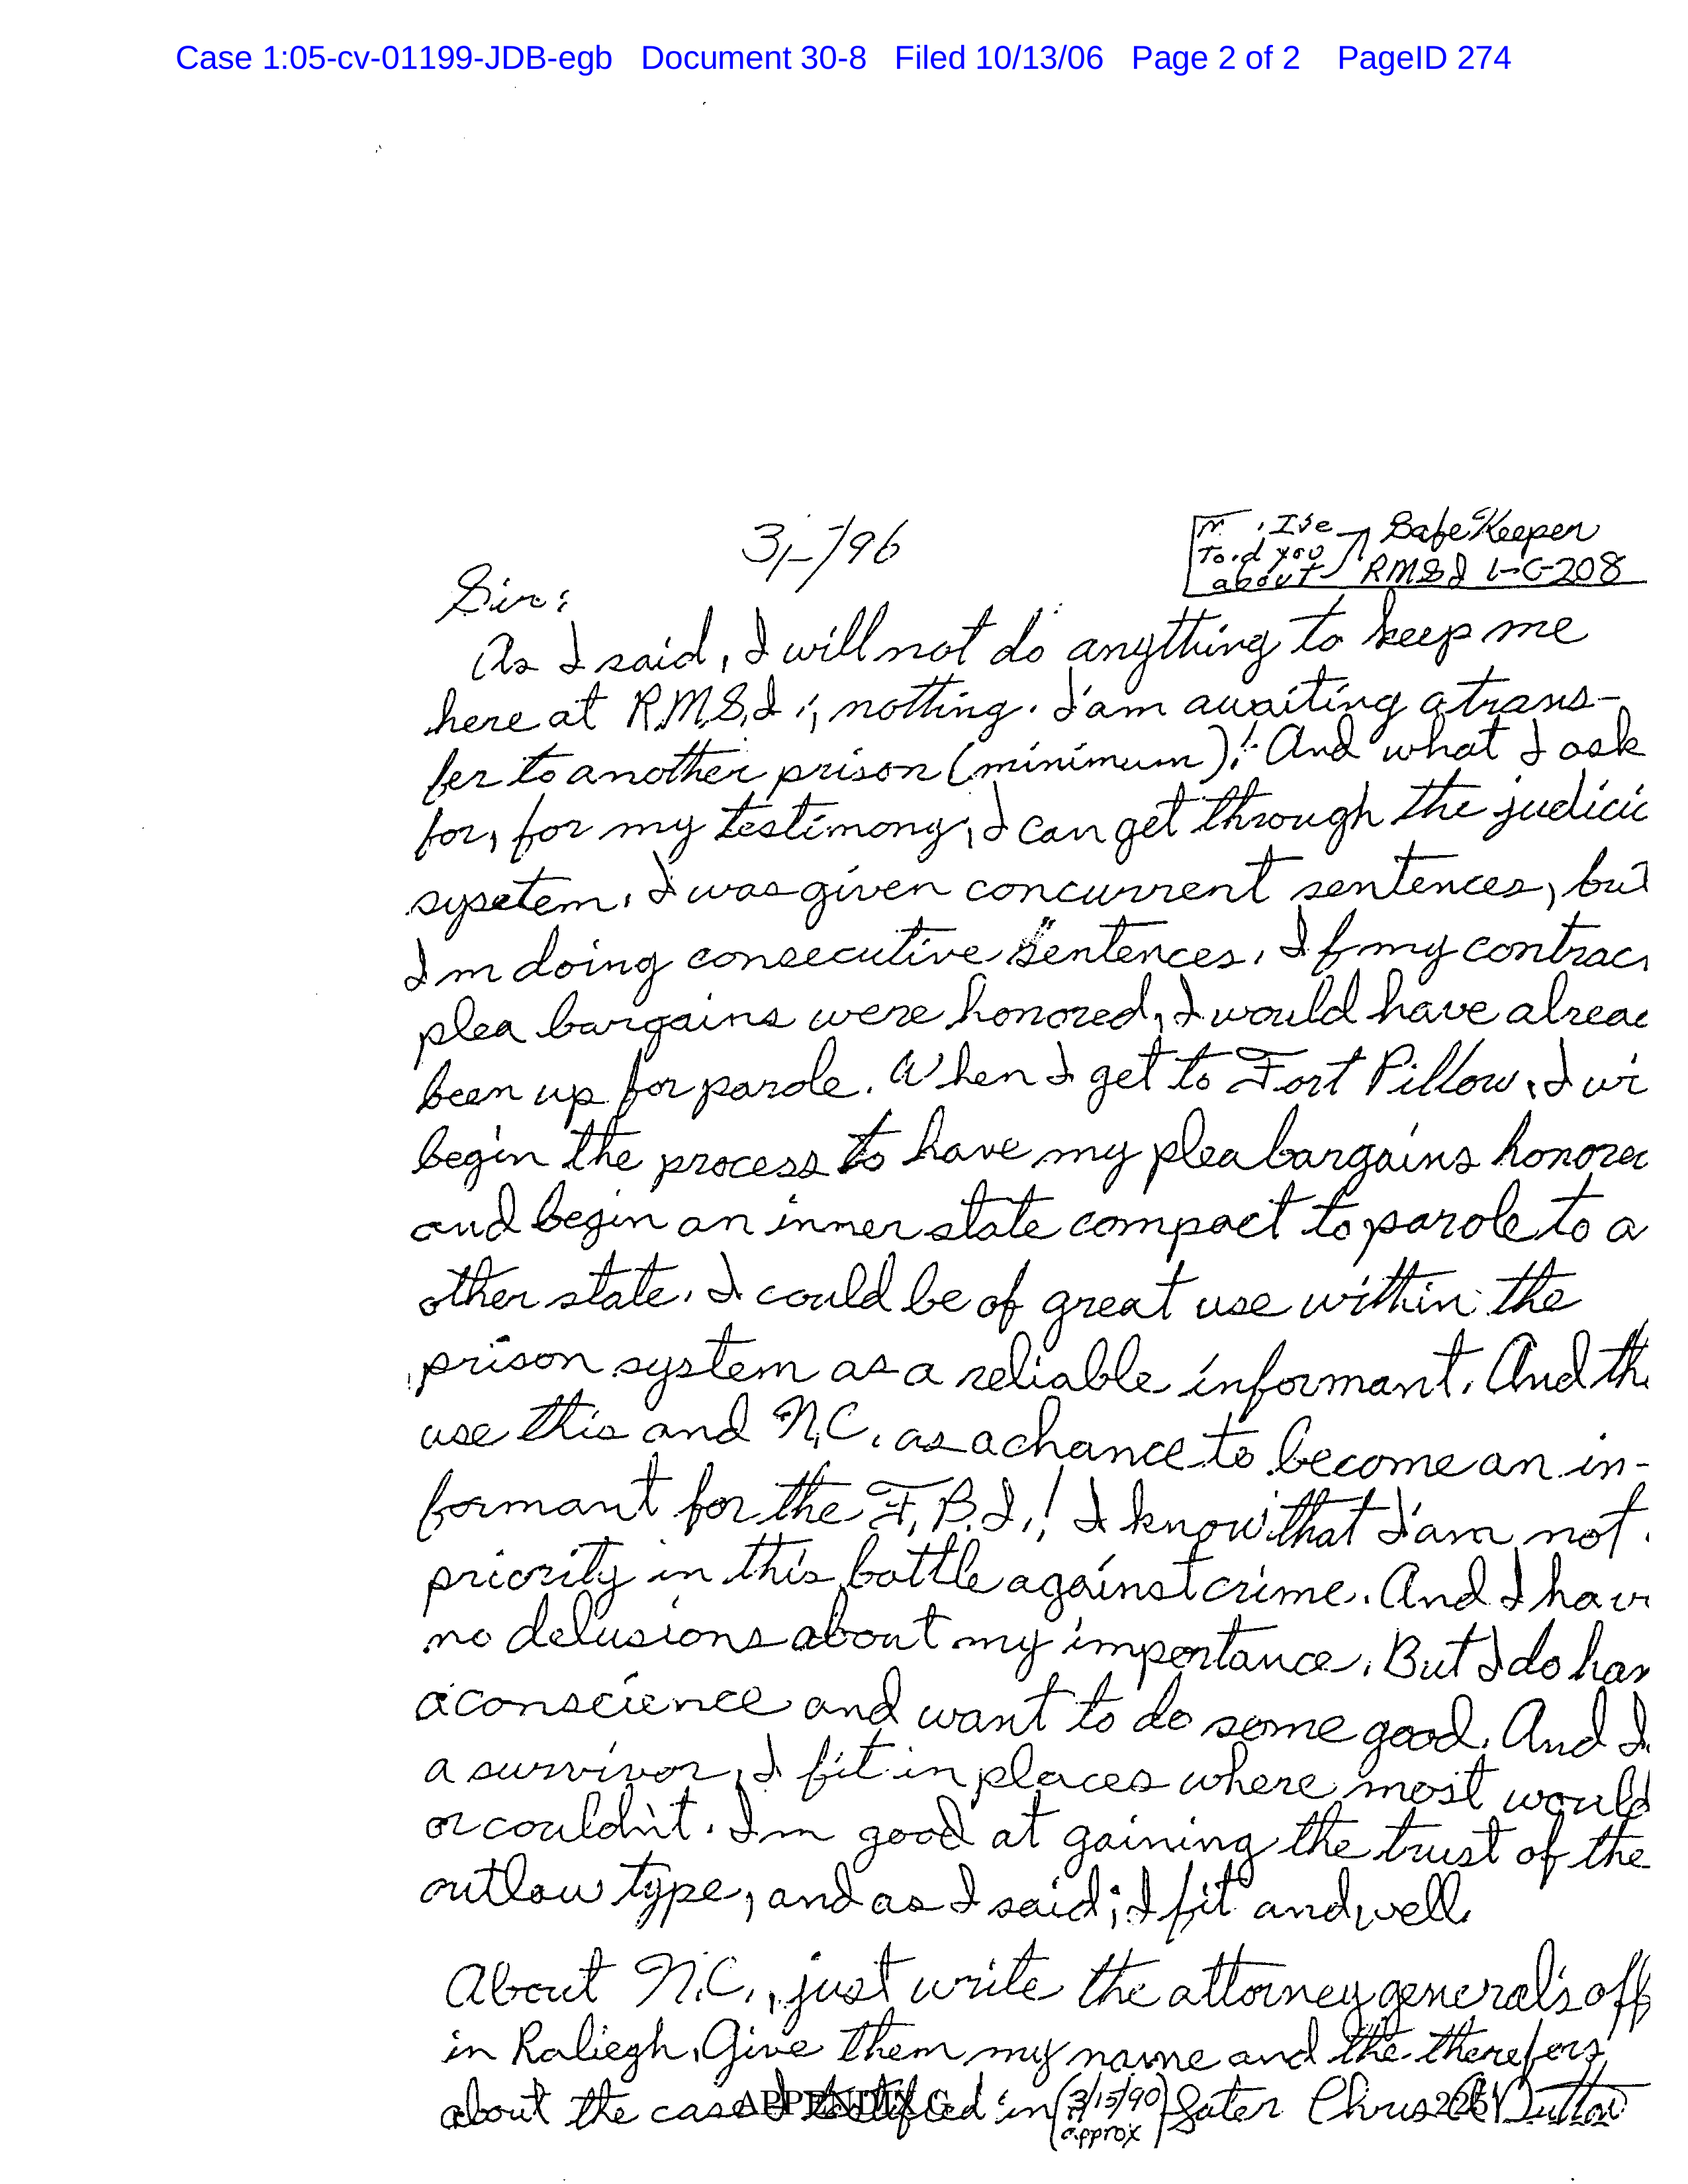 Case 1:05-cv-01199-JDB-egb Document 30-8 Filed 10/13/06 Page 2 of 2 PageID 274
3/-/96
I've Safe Keeper
you
about RMSI 1-C-208
Sir:
As I said, I will not do anything to keep me
here at R.M.S.I; notting. I'am awaiting a trans-
fer to another prison (minimum)! And what I ask
for, for my testimony, I can get through the judicic
sysetem. I was given concurrent sentences, but
I'm doing consecutive sentences. If my contrac
plea bargains were honored, I would have alread
been up for parole. When I get to Fort Pillow, I wi
begin the process to have my plea bargains honored
and begin an inner state compact to parole to a
other state. I could be of great use within the
prison system as a reliable informant. And th
use this and N.C. as a chance to become an in-
formant for the F.B.I.! I know that I'am not
priority in this battle against crime. And I hav
no delusions about my importance. But I do hav
a conscience and want to do some good. And I
a survivor, I fit in places where most would
or could'nt. I'm good at gaining the trust of the
outlaw type, and as I said; I fit and well.
About N.C., just write the attorney general's off
in Raliegh, Give them my name and the
about the case I testified in (3/15/90 approx) Later Chris A Dutton
APPENDIX G